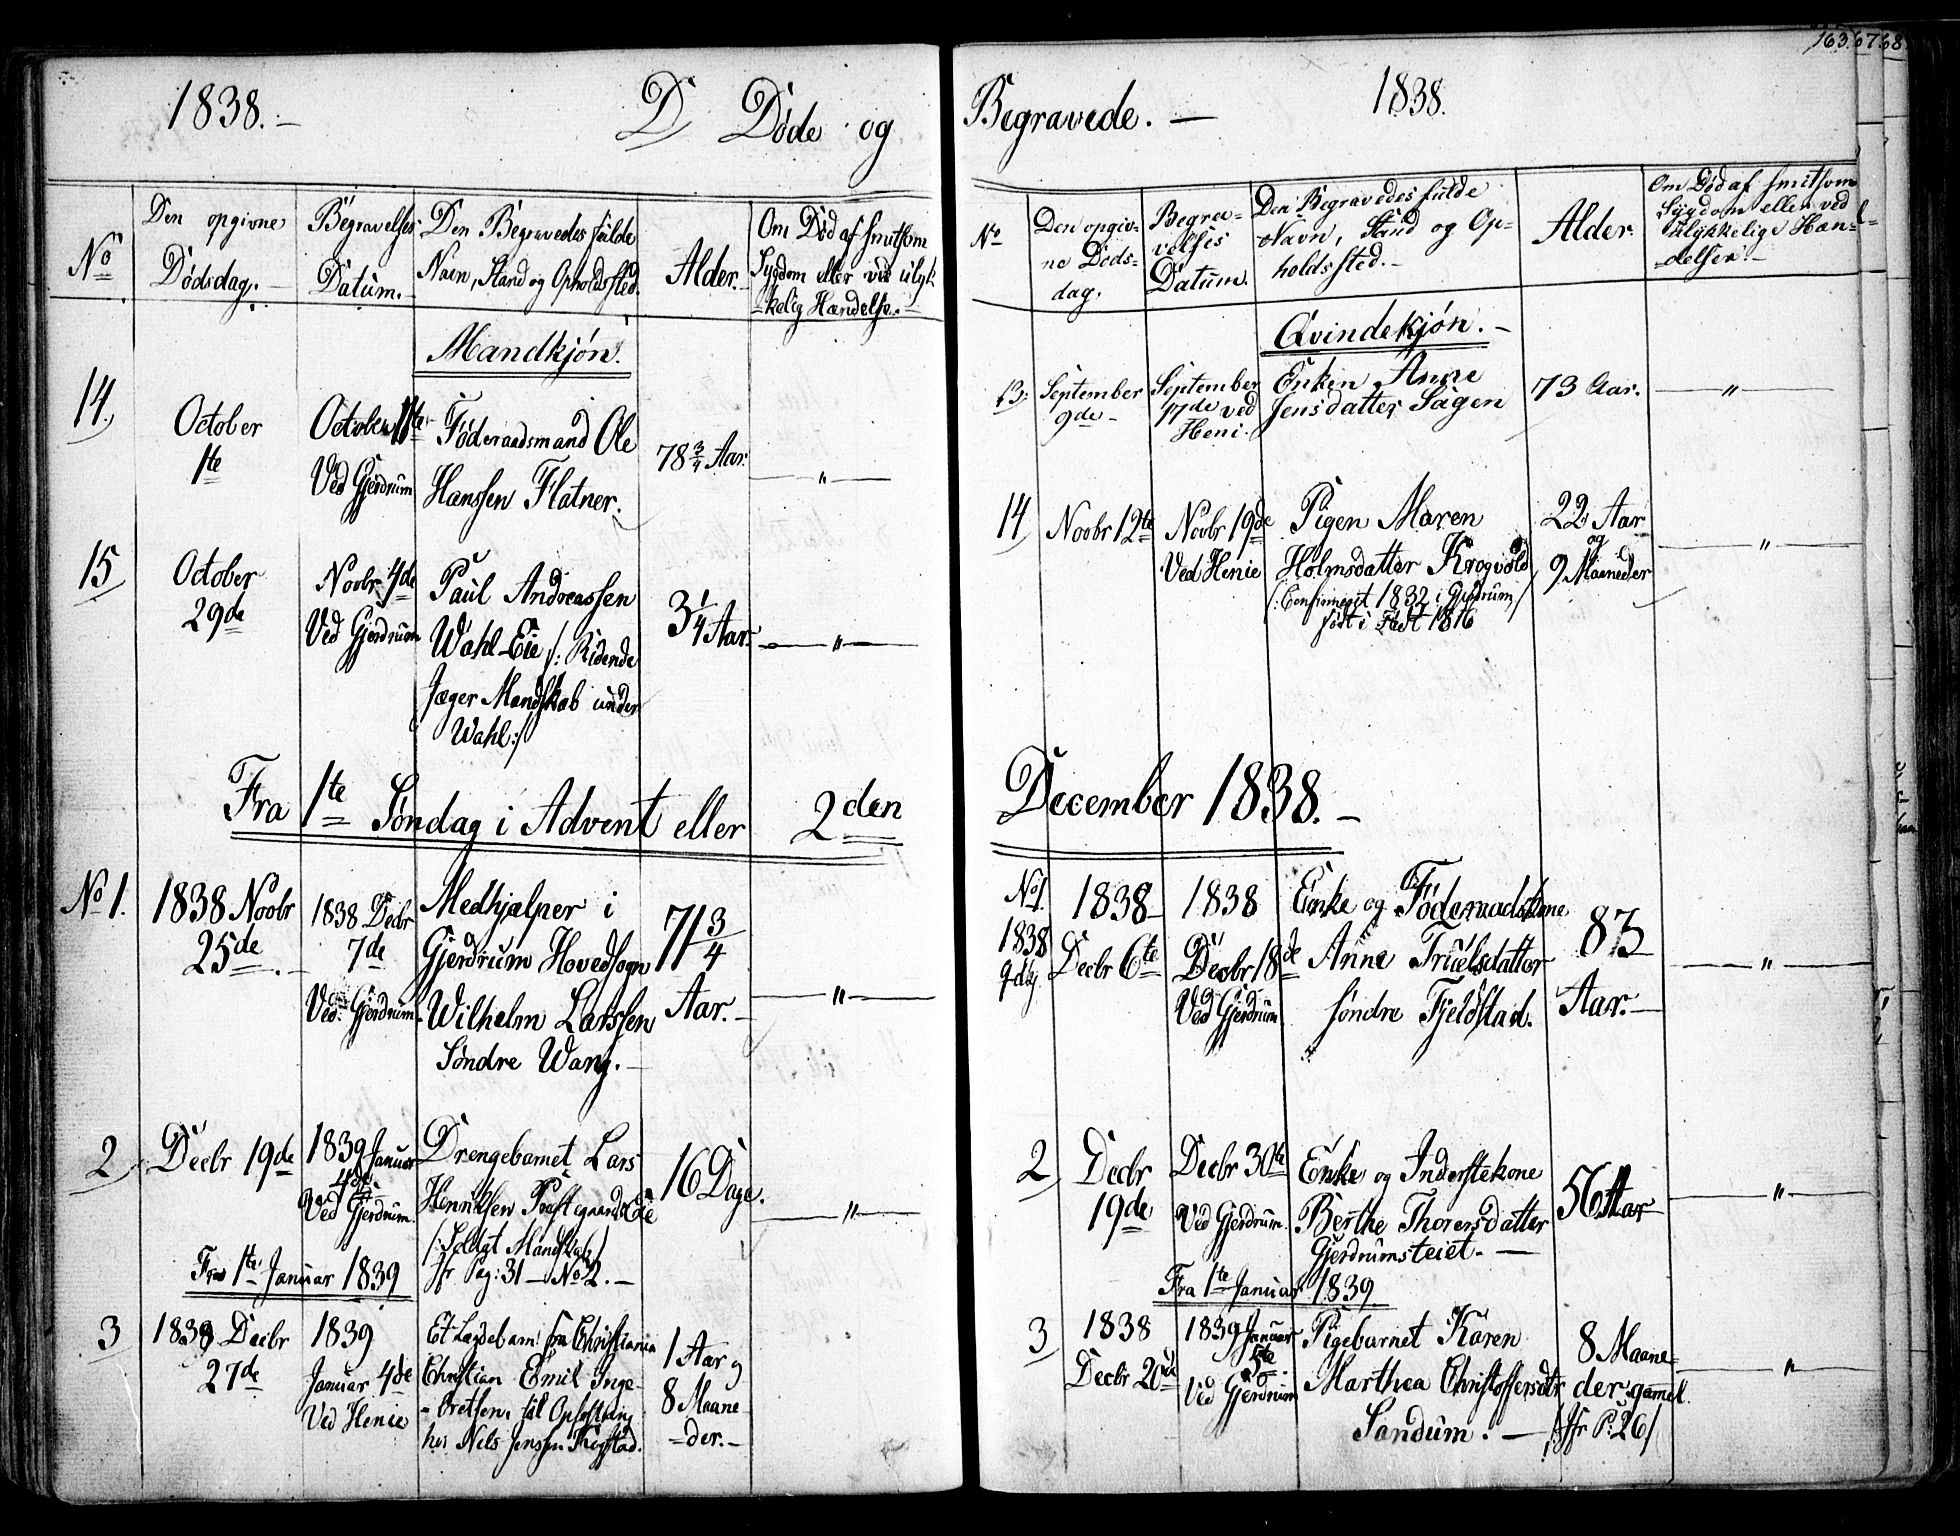 1838.-
D, Døde og
Den opgivne
Dødsdag.-
Begravelses
Datum.-
Den Begravedes fulde
Navn, Stand og Opholdssted.
Alder.-
Om Død af smitsom
Sygdom eller ved ulyk
-kelig Hændelse.-
No
Mandkjøn.
14,
October
1te
October 11te
Ved Gjerdrum
Føderaadsmand Ole
Hanssen Flatner.
78 3/4 Aar.
"
15,
October
29de
Novbr 4de
Ved Gjerdrum
Paul Andreassen
Wahl-Eie /: Ridende
Jæger Mandskab under
Wahl :/
3 1/4 Aar.
"
Fra 1te Søndag i Advent eller 2den
No 1.
1838 Novbr
25de.
1838 Decbr
7de
Ved Gjerdrum.
Medhjælper i
Gjerdrum Hovedsogn
Wilhelm Larssen
Søndre Wang.-
71 3/4
Aar.-
"
2,
Decbr 19de
1839 Januar
4de
Ved Gjerdrum.
Drengebarnet Lars
Henriksen Præstegaards Eie
/: Soldat Mandskab /
Jfr Pag: 31 - No 2.-
16 Dage.
"
Fra 1te Januar 1839
3
1838 Decbr
27de
1839
Januar 4de
Ved Henie
Et Løsebarn fra Christiania
Christian Emil Inge-
-bretsen, til Opfostring
hos Nels Jenssen Kogstad.
1 Aar og
8 Maane-
-der.-
"
163.6768
Begravede.- 1838.
No
Den opgiv-
ne Døds-
dag.
Begra-
velses
Datum.
Den Begravedes fulde
Navn, Stand og Op-
holdssted.-
Alder.
Om Død af smitsom
Sygdom eller ved
ulykkelige Hæn-
-delser.-
Qvindekjøn.-
13,
September
9de-
September
17de ved
Heni.
Enken Anne
Jensdatter Sagen
73 Aar.
"
14,
Novbr 12te
Novbr 19de
Ved Henie
Pigen Maren
Holmsdatter Krogvold
/: Confirmeret 1832 i Gjerdrum /
født i Fædt 1816
22 Aar
og
9 Maaneder
"
December 1838.-
No 1.
1838
9de
1838
Decbr 6te
1838
Decbr 18de
Ved Gjerdrum
Enke og Føderaadskone
Anne Truelsdatter
søndre Fjeldstad.
83
Aar.-
"
2,
Decbr
19de
Decbr 30te
Ved Gjerdrum.
Enke og Inderstekone
Berthe Thorersdatter
Gjerdrumsteiet.-
56 Aar
"
Fra 1te Januar 1839
3,
1838
Decbr 20de
1839 Januar
5te
Ved Gjerdrum
Pigebarnet Karen
Marthea Christoffersdtr
Sandum.-
8 Maane-
der gamel.
/: Jfr P: 26 /
"